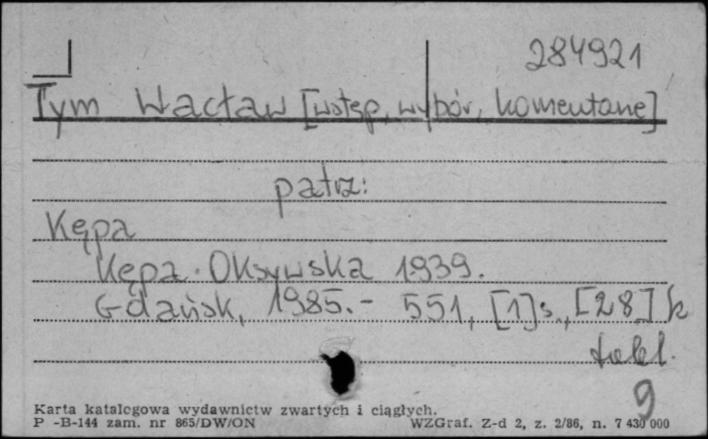 284921
Tym Wacław [wstęp, wybór, komentarze]
patrz:
Kępa
Kępa Oksywska 1939.
Gdańsk, 1985.- 551, [1]s., [28] k
tabl.
9
Karta katalogowa wydawnictw zwartych i ciągłych.
P -B-144 zam. nr 865/DW/ON WZGraf. Z-d 2, z. 2/86, n. 7 430 000